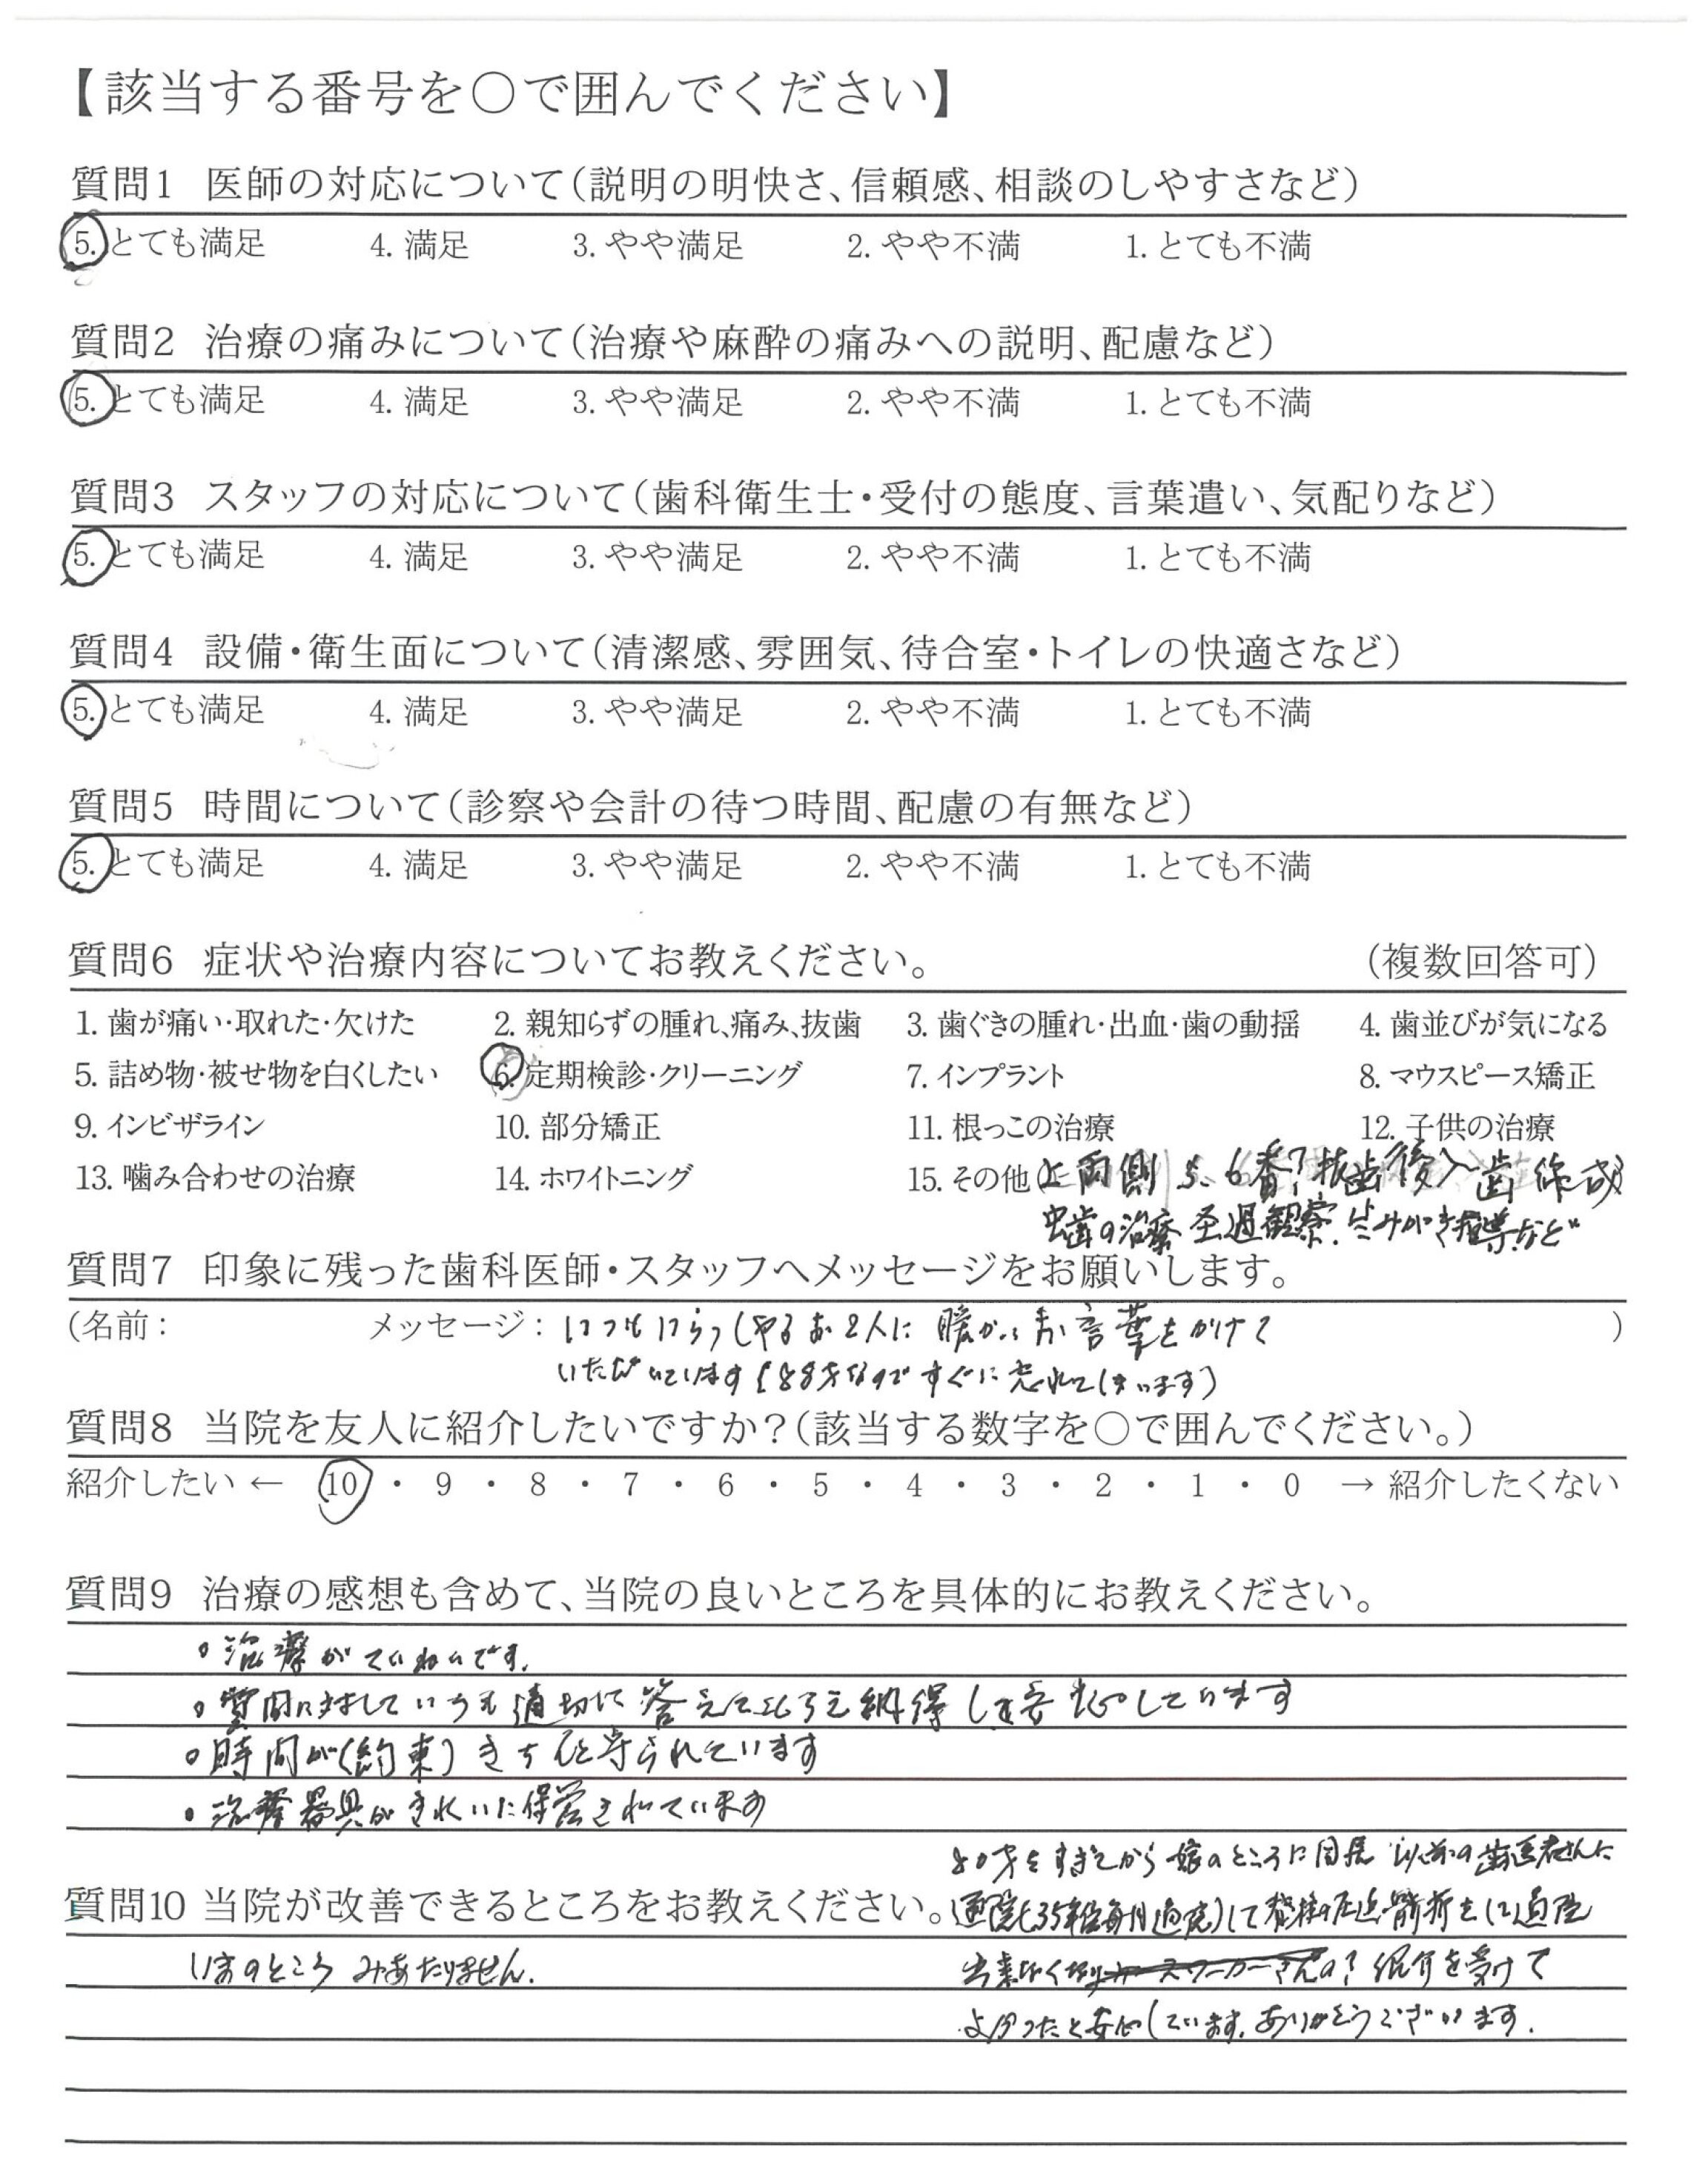 【該当する番号を○で囲んでください】
質問1 医師の対応について(説明の明快さ、信頼感、相談のしやすさなど)
5. とても満足 4. 満足 3. やや満足 2. やや不満 1. とても不満
質問2 治療の痛みについて(治療や麻酔の痛みへの説明、配慮など)
5. とても満足 4. 満足 3. やや満足 2. やや不満 1. とても不満
質問3 スタッフの対応について(歯科衛生士・受付の態度、言葉遣い、気配りなど)
5. とても満足 4. 満足 3. やや満足 2. やや不満 1. とても不満
質問4 設備・衛生面について(清潔感、雰囲気、待合室・トイレの快適さなど)
5. とても満足 4. 満足 3. やや満足 2. やや不満 1. とても不満
質問5 時間について(診察や会計の待つ時間、配慮の有無など)
5. とても満足 4. 満足 3. やや満足 2. やや不満 1. とても不満
質問6 症状や治療内容についてお教えください。 (複数回答可)
1. 歯が痛い・取れた・欠けた 2. 親知らずの腫れ、痛み、抜歯 3. 歯ぐきの腫れ・出血・歯の動揺 4. 歯並びが気になる
5. 詰め物・被せ物を白くしたい 6. 定期検診・クリーニング 7. インプラント 8. マウスピース矯正
9. インビザライン 10. 部分矯正 11. 根っこの治療 12. 子供の治療
13. 噛み合わせの治療 14. ホワイトニング 15. その他(上両側 5、6番?抜歯後入歯作成)
虫歯の治療 経過観察、はみがき指導など
質問7 印象に残った歯科医師・スタッフへメッセージをお願いします。
(名前: メッセージ: いつもいらっしゃるお2人に 暖かいお言葉をかけて )
いただいています(88才なので すぐに忘れてしまいます)
質問8 当院を友人に紹介したいですか?(該当する数字を○で囲んでください。)
紹介したい ← 10 ・ 9 ・ 8 ・ 7 ・ 6 ・ 5 ・ 4 ・ 3 ・ 2 ・ 1 ・ 0 → 紹介したくない
質問9 治療の感想も含めて、当院の良いところを具体的にお教えください。
○治療がていねいです。
○質問に対していつも適切に答えてもらえ納得し安心しています
○時間が(約束)きちんと守られています
・治療器具がきれいに保管されています
80才をすぎてから 娘のところに同居 以前の歯医者さんに
質問10 当院が改善できるところをお教えください。
通院(35年位毎月通院)して 圧迫骨折をして通院
いまのところ みあたりません。
出来なくなり 紹介を受けて
よかったと安心しています。ありがとうございます。